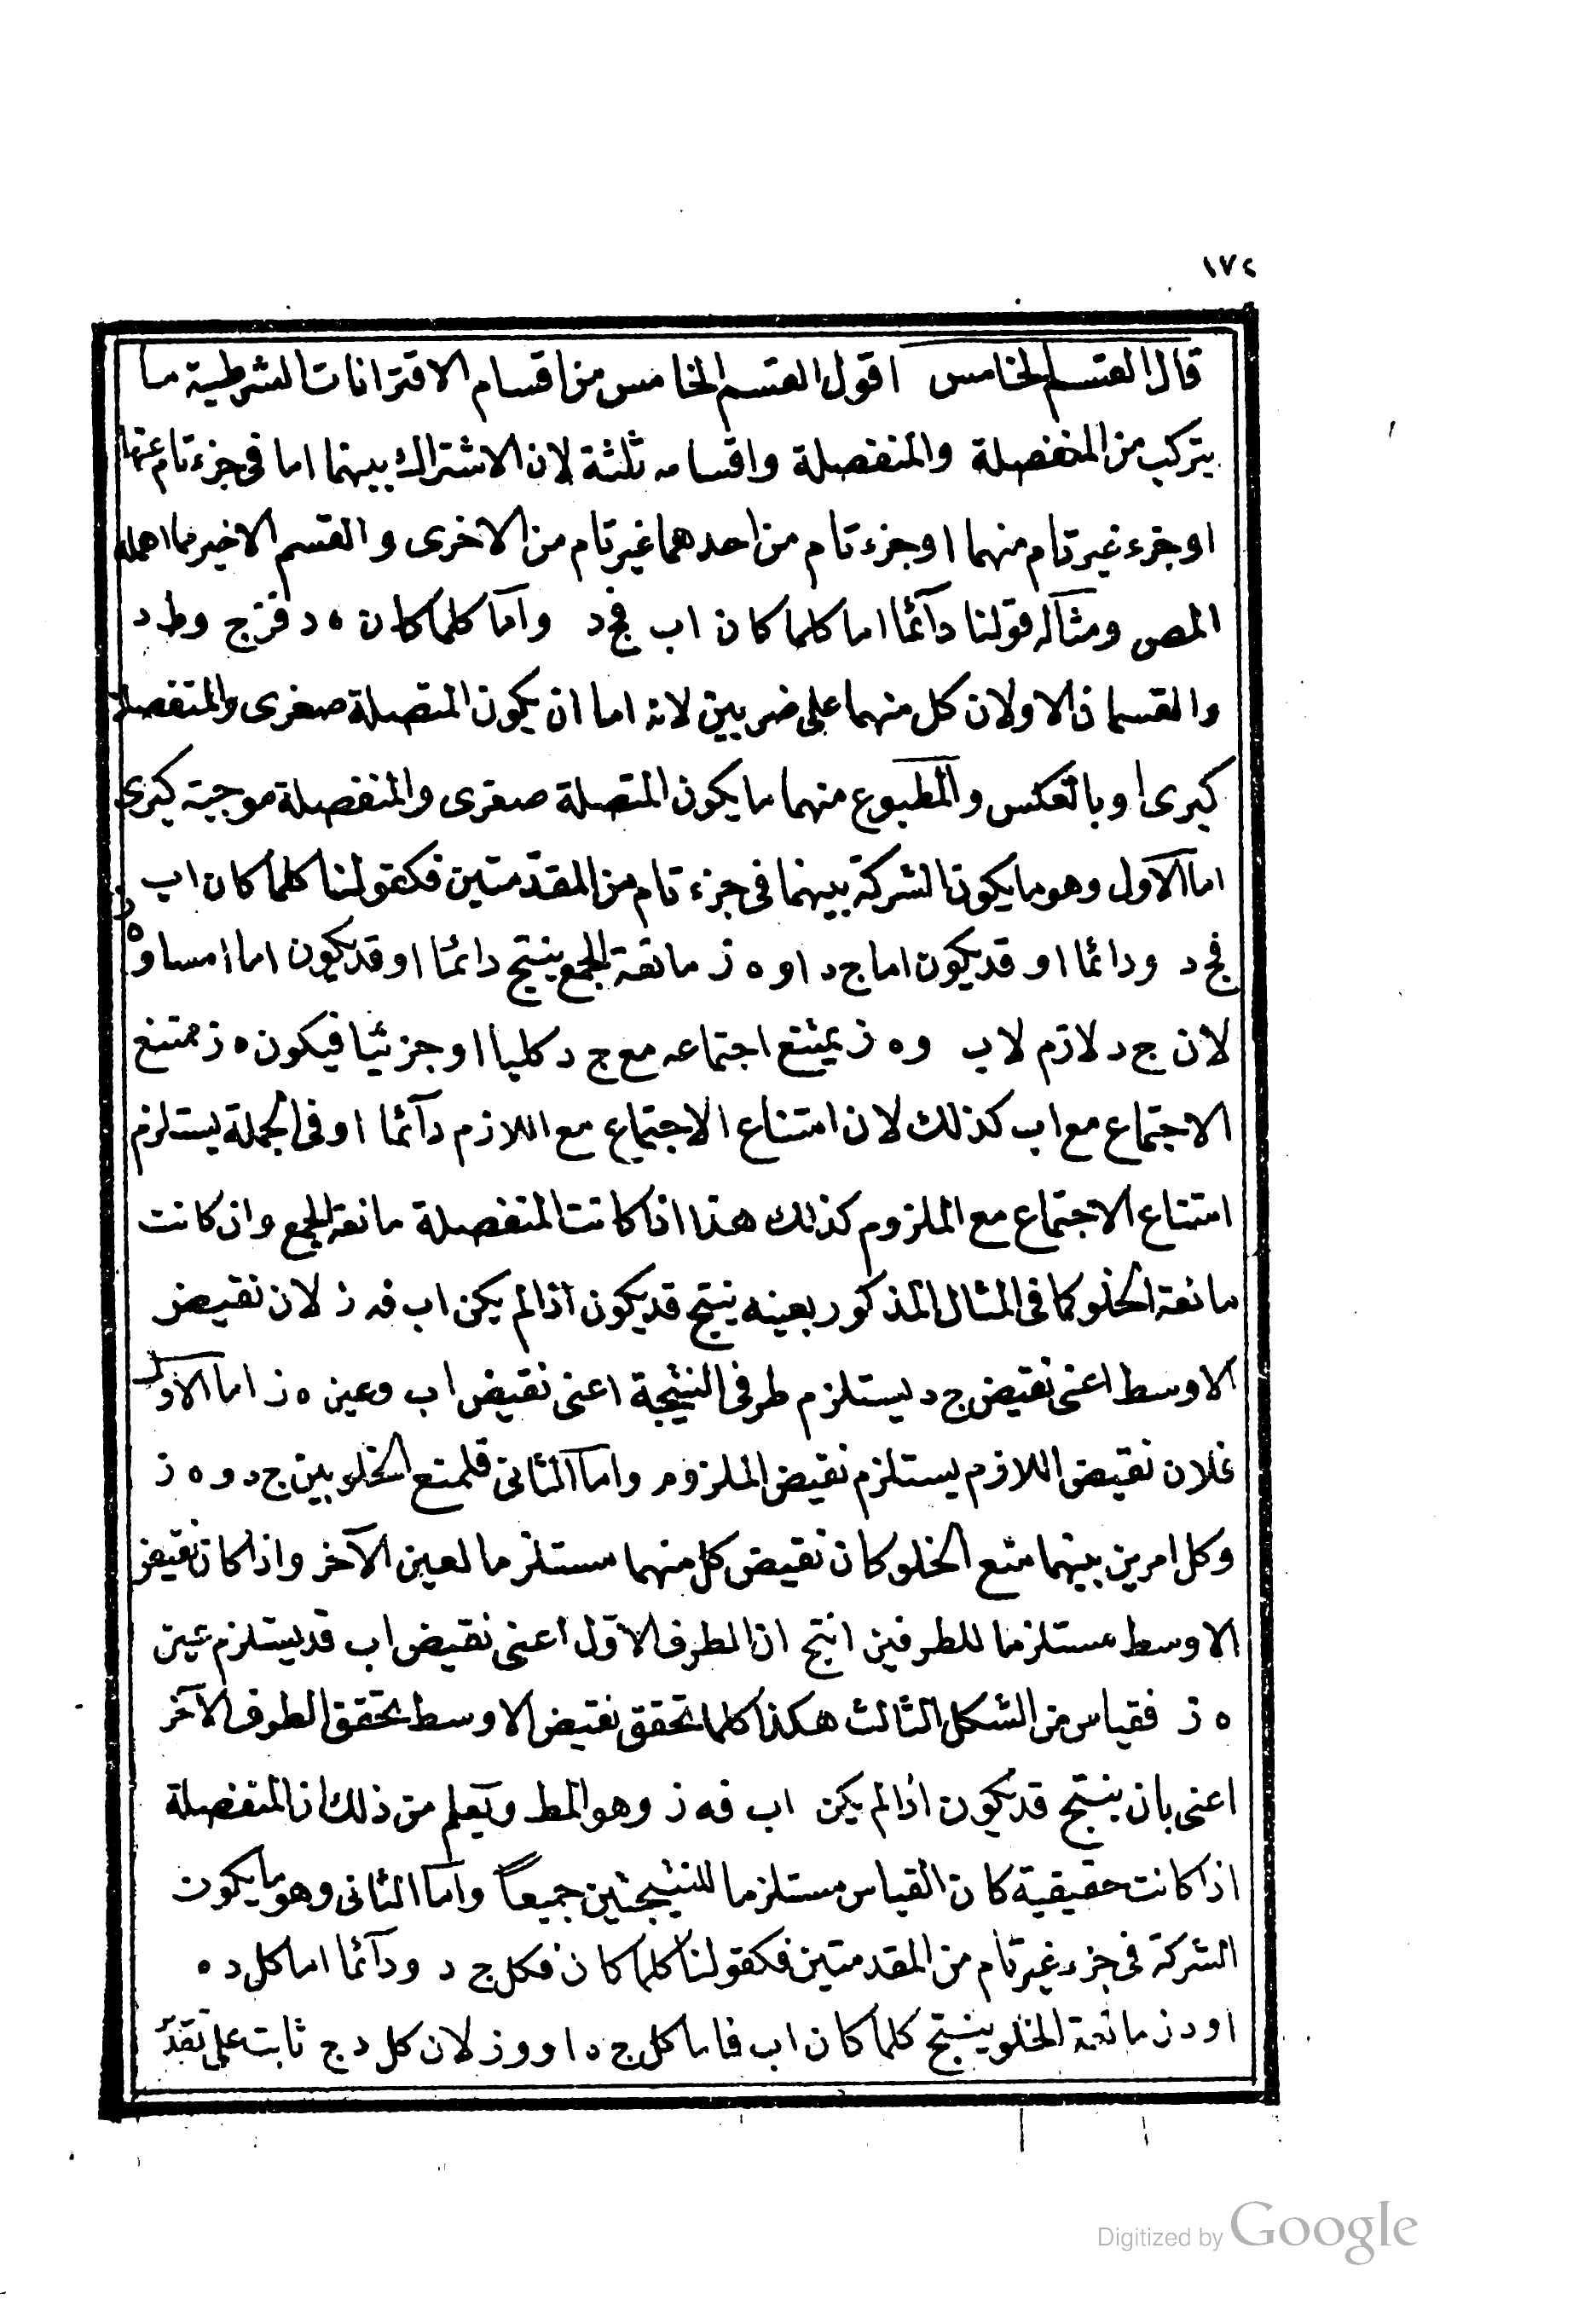 ١٧٤
قال القسم الخامس اقول القسم الخامس من اقسام الاقترانات الشرطية ما
يتركب من المنفصلة والمنفصلة واقسامه ثلثة لان الاشتراك بينهما اما فى جزء تام منهما
او جزء غير تام منهما او جزء تام من احدهما غير تام من الاخرى والقسم الاخير مما اهمله
المص ومثاله قولنا دآئما اما كلما كان اب فج د واما كلما كان ه د فزج وط د
والقسمان الاولان كل منهما على ضربين لانه اما ان يكون المتصلة صغرى والمنفصلة
كبرى او بالعكس والمطبوع منهما ما يكون المتصلة صغرى والمنفصلة موجبة كبرى
اما الاول وهو ما يكون الشركة بينهما فى جزء تام من المقدمتين فكقولنا كلما كان اب
فج د ودائما او قد يكون اما ج د او ه ز مانعة الجمع ينتج دائما او قد يكون اما اب او ه ز
لان ج د لازم لاب وه ز يمتنع اجتماعه مع ج د كليا او جزئيا فيكون ه ز ممتنع
الاجتماع مع اب كذلك لان امتناع الاجتماع مع اللازم دآئما او فى الجملة يستلزم
امتناع الاجتماع مع الملزوم كذلك هذا اذا كانت المنفصلة مانعة الجمع وان كانت
مانعة الخلو كما فى المثال المذكور بعينه ينتج قد يكون اذا لم يكن اب فه ز لان نقيض
الاوسط اعنى نقيض ج د يستلزم طرفى النتيجة اعنى نقيض اب وعين ه ز اما الاول
فلان نقيض اللازم يستلزم نقيض الملزوم واما الثانى فلمنع الخلو بين ج د وه ز
وكل امرين بينهما منع الخلو كان نقيض كل منهما مستلزما لعين الآخر واذا كان نقيض
الاوسط مستلزما للطرفين انتج ان الطرف الاول اعنى نقيض اب قد يستلزم عين
ه ز فقياس من الشكل الثالث هكذا كلما تحقق نقيض الاوسط تحقق الطرف الآخر
اعنى بان ينتج قد يكون اذا لم يكن اب فه ز وهو المط ويعلم من ذلك ان المنفصلة
اذا كانت حقيقية كان القياس مستلزما للنتيجتين جميعاً واما الثانى وهو ما يكون
الشركة فى جزء غير تام من المقدمتين فكقولنا كلما كان فكل ج د ودآئما اما كل د ه
او د ز مانعة الخلو ينتج كلما كان اب فاما كل ج ه او و ز لان كل د ج ثابت على تقدير
Digitized by Google